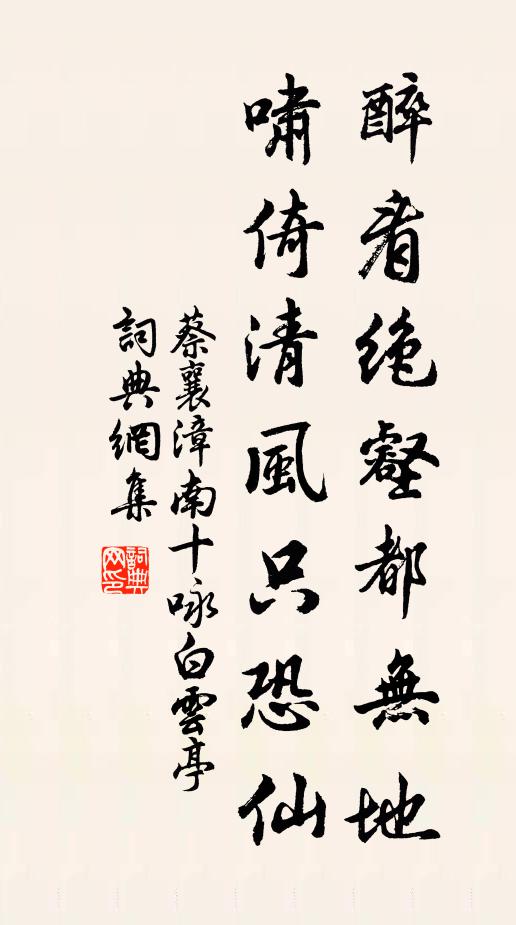 醉看絶壑都無地
嘯倚清風只恐仙
蔡襄漳南十咏白雲亭
詞典網集
詞典网印